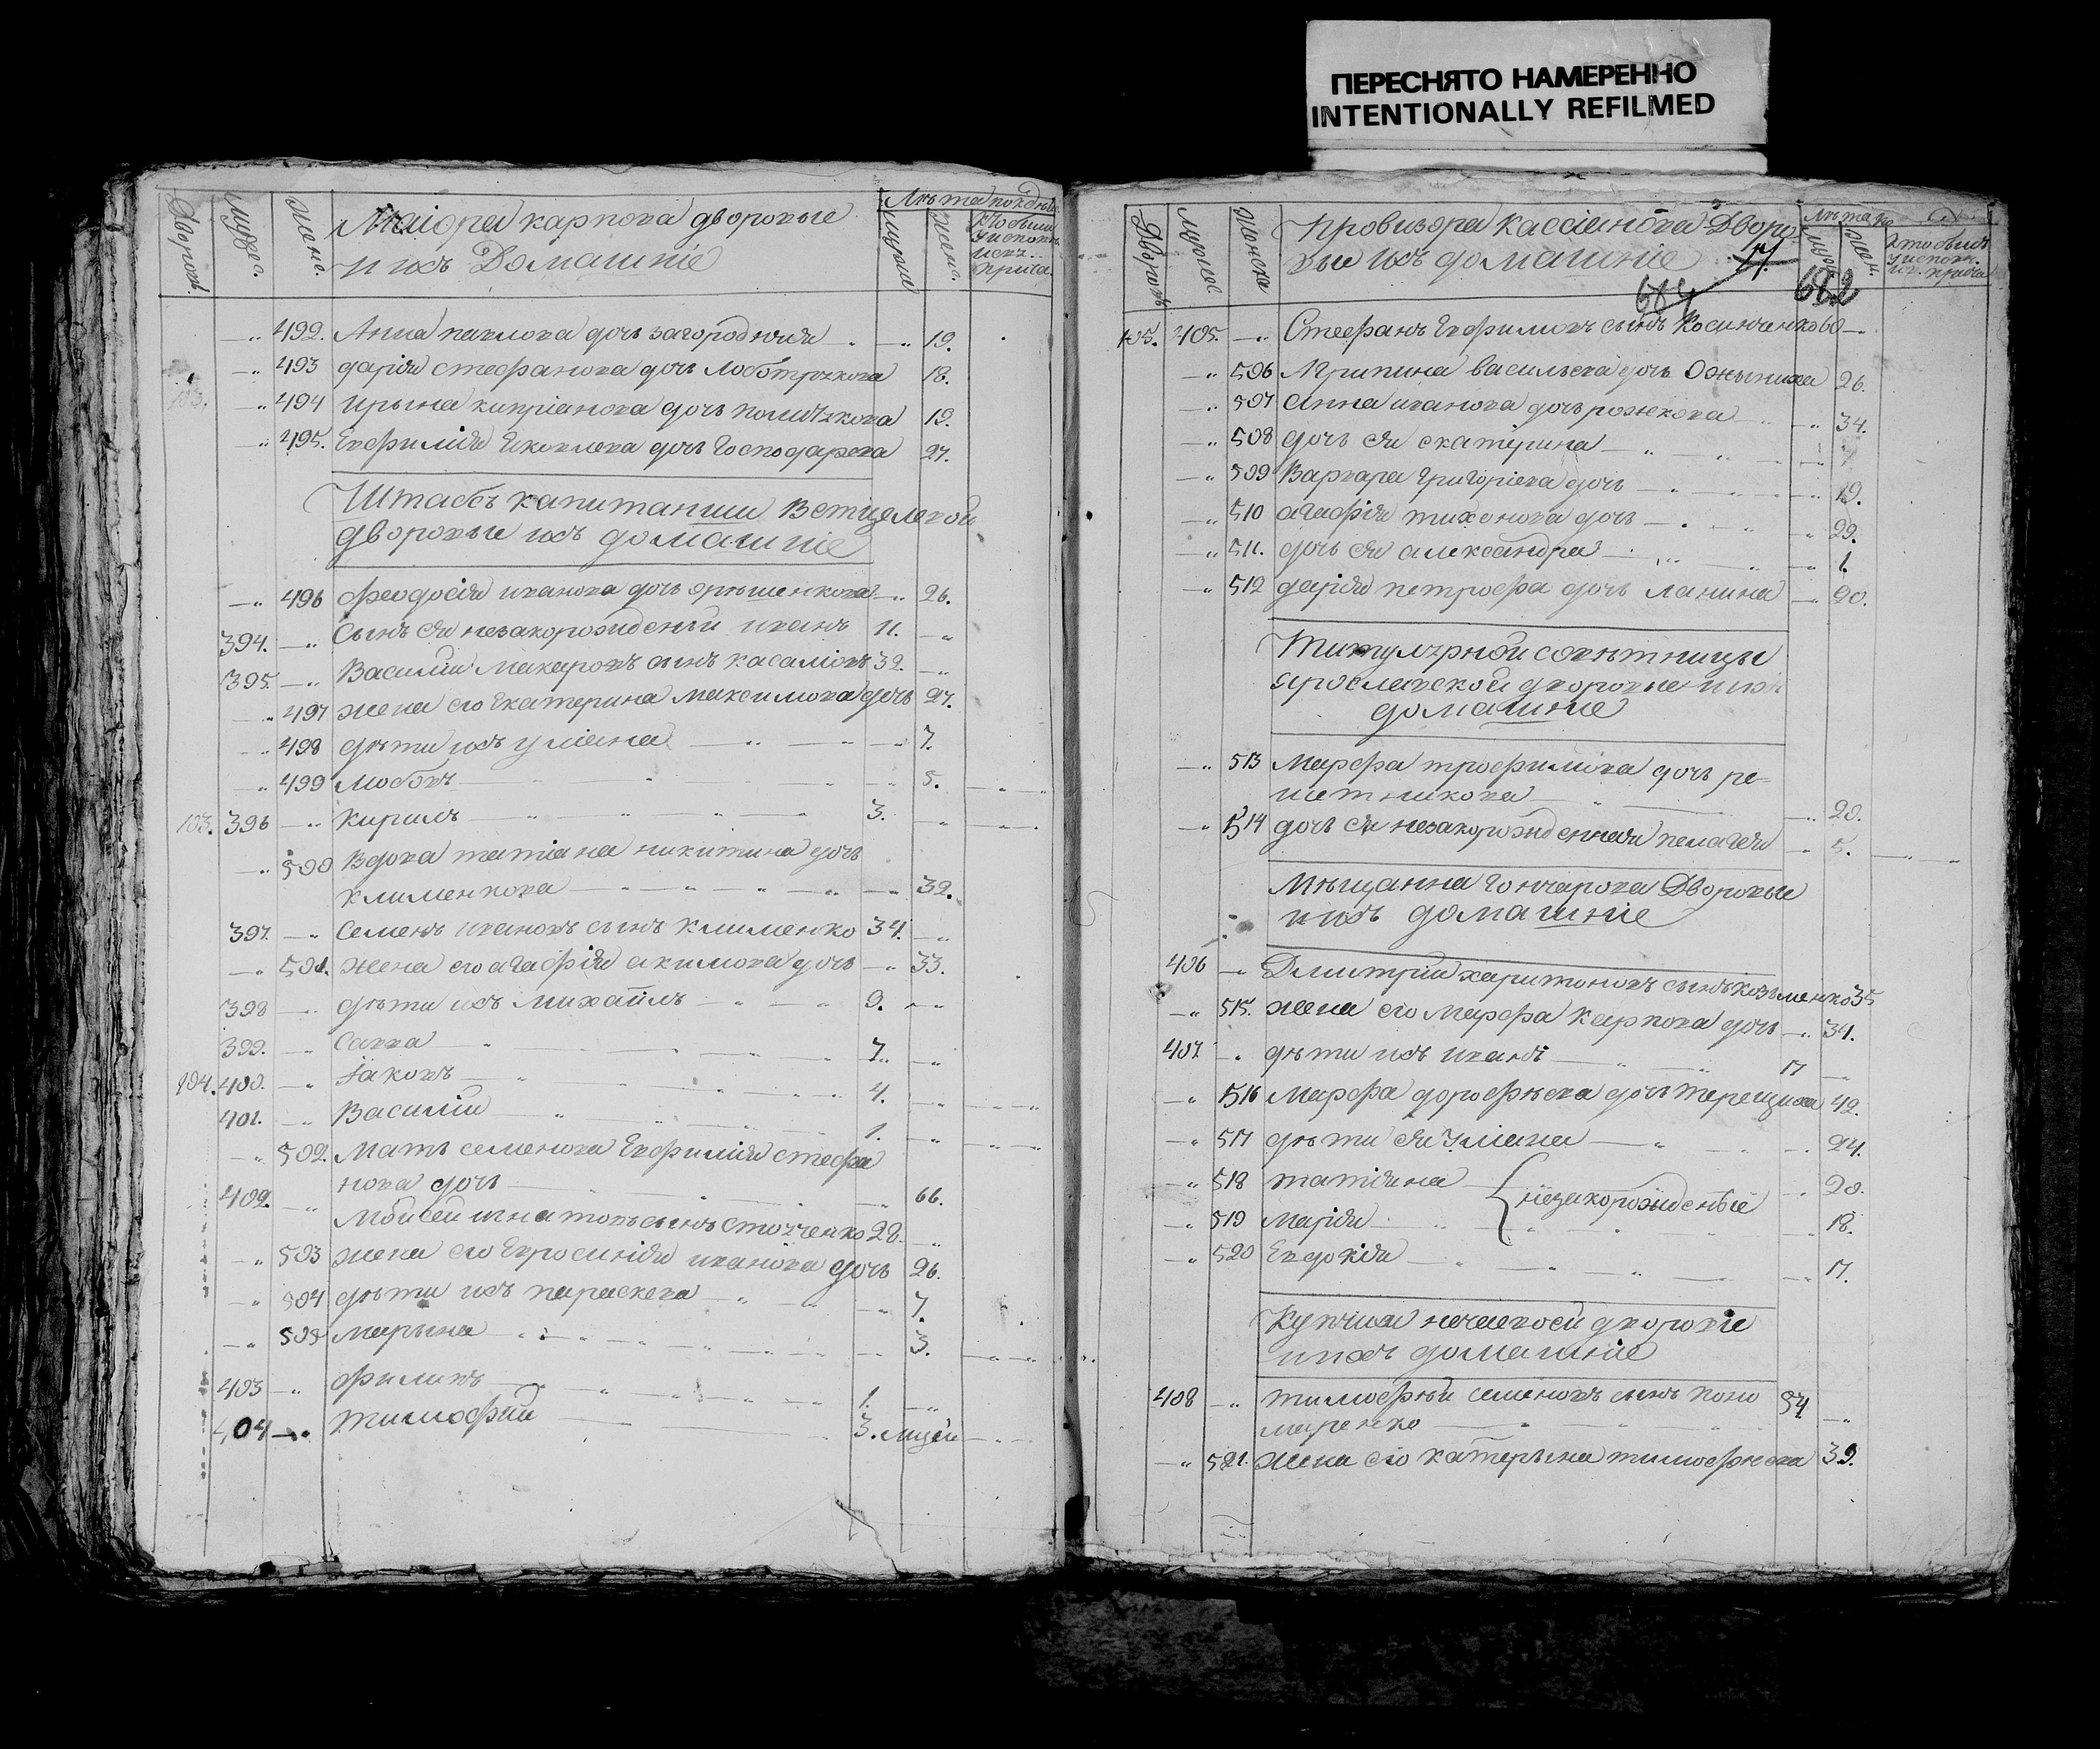 ПЕРЕСНЯТО НАМЕРЕННО
INTENTIONALLY REFILMED
Дворовъ. Мужес. Женс.
Маіора карпова дворовые
и ихъ Домашніе
Лѣта
Мужеска Женс.
492. Анна павлова дочь загородняя 19.
493 дарія стефанова дочь 18.
494 Ирына кипріанова дочь 19.
495. Евфимія Яковлева дочь Господарева 27.
Штабъ капитанши
дворовые ихъ домашніе
496 феодосія иванова дочь 26.
394. Сынъ ея незаконорожденый иванъ 11.
395. Василій Макаровъ сынъ 32.
497 жена его Екатерина Максимова дочь 27.
498 дѣти ихъ уліана 7.
499 Любовь 5.
103. 396 Кирилъ 3.
500 Вдова татіана никитина дочь
клименкова 32.
397. Семенъ ивановъ сынъ клименко 34.
501. жена его агафія акимова дочь 33.
398 дѣти ихъ Михаилъ 9.
399. Савва 7.
104. 400. Іаковъ 4.
401. Василій 1.
502. Мать семенова Евфимія стефа
нова дочь 66.
402. Моисей игнатовъ сынъ 28.
503 жена его Евросинія иванова дочь 26.
504 дѣти ихъ параскева 7.
505 марына 3.
403 Филипъ 1.
404 тимофей 3. мцей
Дворовъ Мужес Женска
провизора кассіанова Дворо
вые ихъ домашніе
684 682
Лѣта
105. 405. Стефанъ Евфимовъ сынъ Косинченко 60
506 Агрипина васильева дочь 26.
507 Анна иванова дочь рожкова 34.
508 дочь ея екатерина
509 Варвара григоріева дочь 19.
510 агафія тихонова дочь 29.
511. дочь ея александра 1.
512 дарія петрофа дочь ланина 20.
Титулярной совѣтницы
ярославской дворовые и ихъ
домашніе
513 Марфа трофимова дочь ре-
шетникова 20.
514 дочь ея незаконорожденная пелагея 5.
Мѣщанина гончарова Дворовые
и ихъ домашніе
406 Дмитрій харитоновъ сынъ козьменко 35
515. жена его Марфа Карпова дочь 34.
407 дѣти ихъ иванъ 17
516 Марфа дорофѣева дочь терещиха 42.
517 дѣти ея Уліана 24.
518 татіяна незаконорожденые 20.
519 Марія 18.
520 Евдокія 17.
Купчихи нечаевой дворовіе
и ихъ домашніе
408 тимофѣй семеновъ сынъ поно
маренко 54
521. жена его катерына тимофѣева 39.